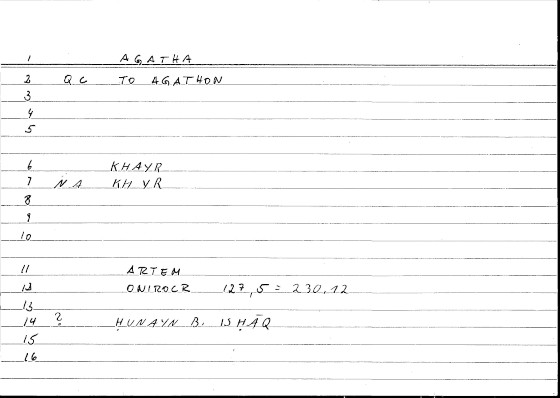 1 AGATHA
2 QC TO AGATHON
3
4
5
6 KHAYR
7 NA KH YR
8
9
10
11 ARTEM
12 ONIROCR 127,5 = 230,12
13
14 ? ḤUNAYN B. ISḤĀQ
15
16